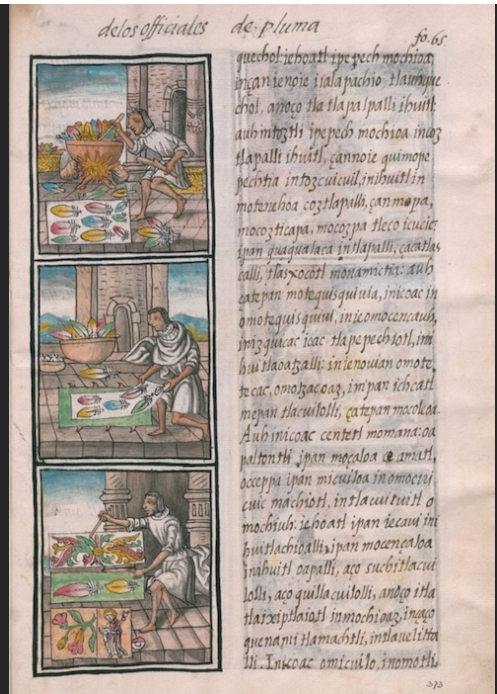 delos officiales de pluma
fo. 65
quechol: iehoatl ipepech mochioa
incan ienoie itlalapachio, tlauhque
chol, anoço tla tlapalpalli ihuitl:
auh intoztli ipepech mochioa in coz
tlapalli ihuitl, çannoie quimope
pechtia intozcuicuil, inihuitl in
motenehoa coztlapalli, çan mopa,
mocozticapa, mocozpa tleco icucic:
ipan quaqualaca in tlapalli, çacatlas
calli, tlalxocotl monamictia: auh
çatepan motequisquiuia, inicoac in
omotequisquiui, inicomocencauh,
inizquicac icac tlapepechiotl, im
huitlaoatzalli: inienouian omote,
tecac, impan ichcatl
mepan tlacuilolli, çatepan mocolcoa.
Auh inicoac centetl momana: oa
paltontli, ipan moçaloa ce amatl,
occeppa ipan micuiloa in
cuic machiotl, intlacuicuitl o
mochiuh: iehoatl ipan iecaui ini
huitlachioalli, ipan mocencaoa
inihuitl oapalli, aço suchitlacui
lolli, aço quillacuilolli, anoço itla
tlaixiptlaiotl inmochioaz, inçaço
quenami tlamachtli, intlauelitta
lli. Inicoac omicuilo, inomotli,
373